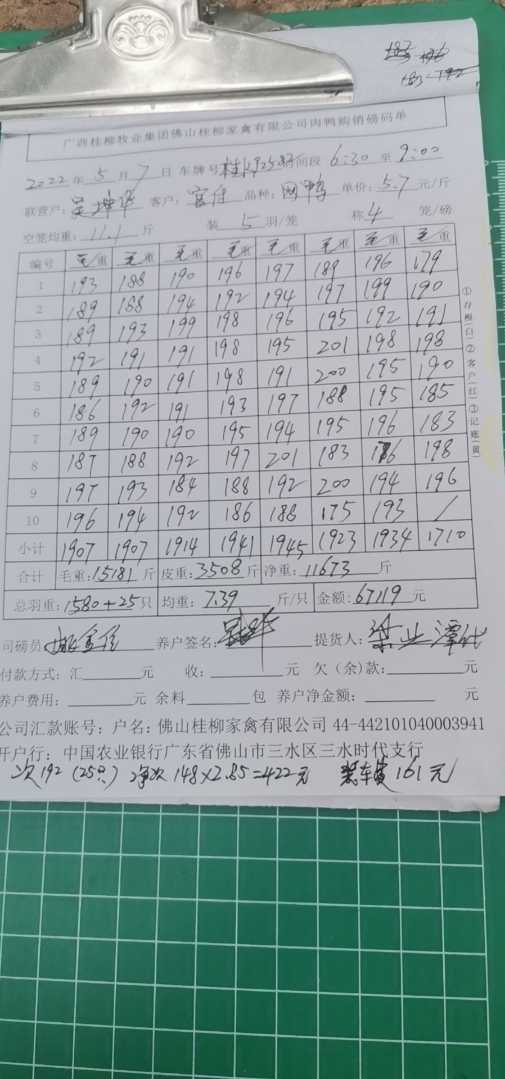 183 196
183-192
广西桂柳牧业集团佛山桂柳家禽有限公司肉鸭购销磅码单
2022年5月7日 车牌号 时间段 6:30 至 9:00
联营户: 客户: 品种: 鸭 单价: 5.7 元/斤
空笼均重: 11.1 斤 装 5 羽/笼 称 4 笼/磅
编号 毛重 毛重 毛重 毛重 毛重 毛重 毛重 毛重
1 193 188 190 196 197 189 196 179
2 189 188 194 192 194 197 199 190
3 189 193 199 198 196 195 192 191
4 192 191 191 198 195 201 198 198
5 189 190 191 198 191 200 195 190
6 186 192 191 193 197 188 195 185
7 189 190 190 195 194 195 196 183
8 187 188 192 197 201 183 198
9 197 193 184 188 192 200 194 196
10 196 194 192 186 188 175 193 /
小计 1907 1907 1914 1941 1945 1923 1934 1710
合计 毛重: 15181 斤 皮重: 3508 斤 净重: 11673 斤
总羽重: 1580+25 只 均重: 7.39 斤/只 金额: 67119 元
司磅员 养户签名: 提货人:
付款方式: 汇 元 收: 元 欠(余)款: 元
养户费用: 元 余料 包 养户净金额: 元
公司汇款账号: 户名: 佛山桂柳家禽有限公司 44-442101040003941
开户行: 中国农业银行广东省佛山市三水区三水时代支行
次192 (25只) 净次 148×2.85=422元 装车费161元
①存根(白)②客户(红)③记账(黄)